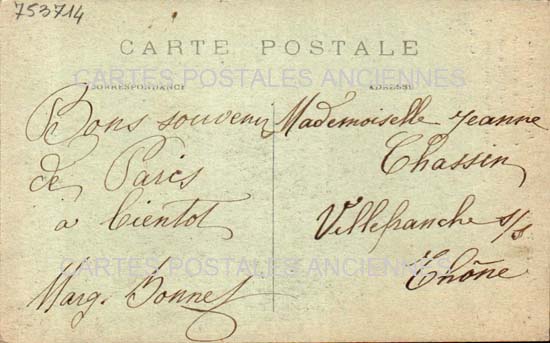 753714
CARTE POSTALE
CARTES POSTALES ANCIENNES
CORRESPONDANCE
ADRESSE
Bons souvenir
de Paris
à bientot
Marg. Bonnet
Mademoiselle Jeanne
Chassin
Villefranche s/s
Rhône
CARTES POSTALES ANCIENNES